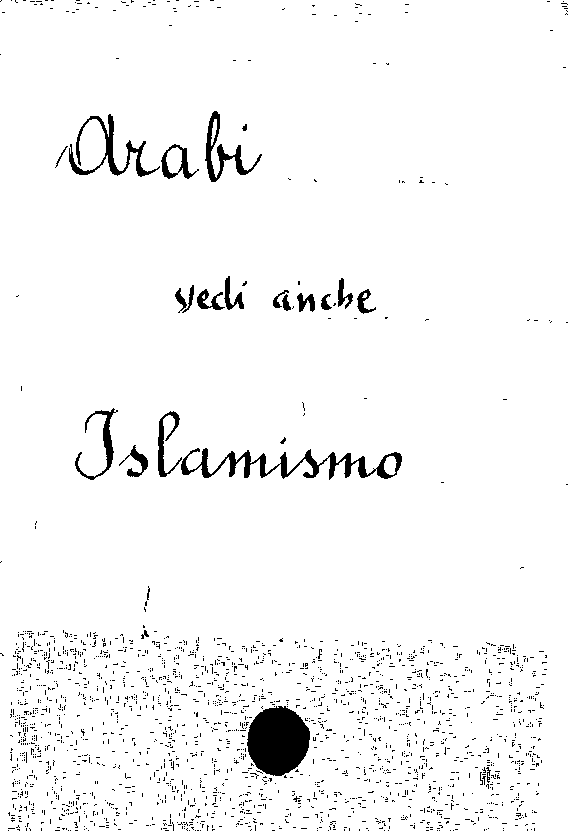 Arabi
vedi anche
Islamismo